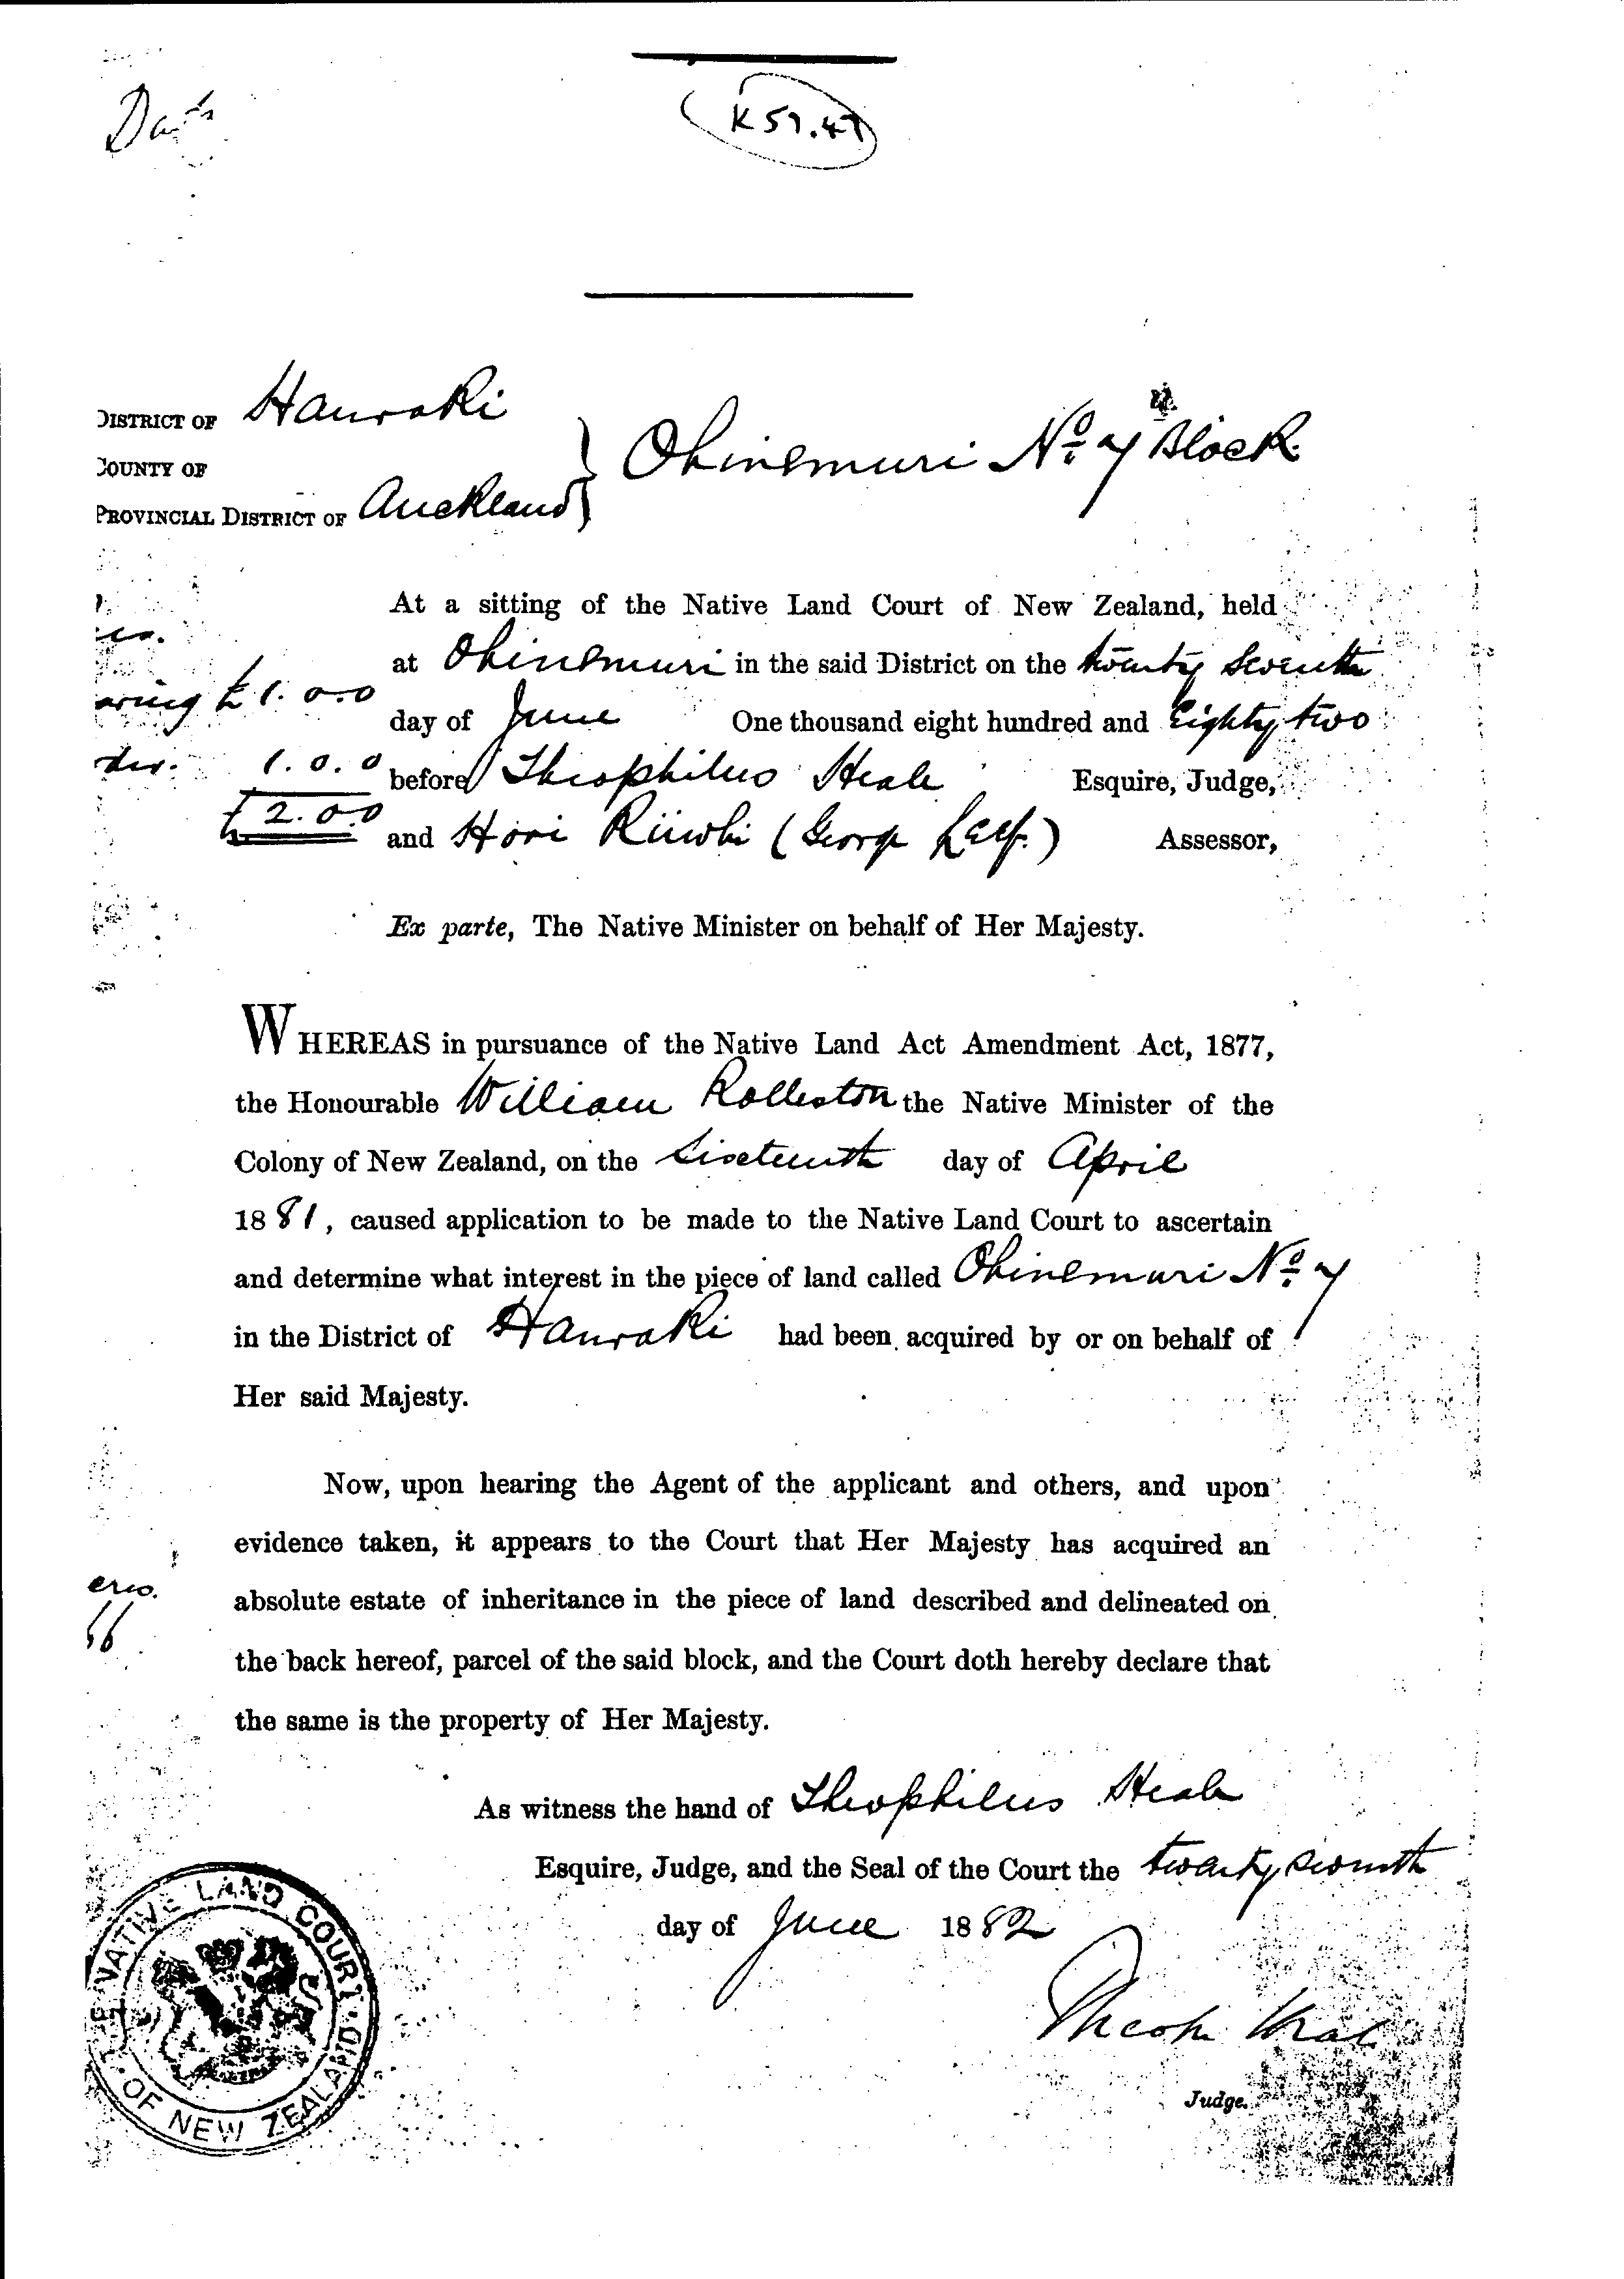 K 57.47
DISTRICT OF Hauraki
COUNTY OF
PROVINCIAL DISTRICT OF Auckland
Ohinemuri No. 7 Block.
At a sitting of the Native Land Court of New Zealand, held
at Ohinemuri in the said District on the twenty seventh
£1.0.0
day of June One thousand eight hundred and Eighty two
1.0.0
before Theophilus Heale Esquire, Judge,
£2.0.0
and Hori (George ) Assessor,
Ex parte, The Native Minister on behalf of Her Majesty.
WHEREAS in pursuance of the Native Land Act Amendment Act, 1877,
the Honourable William Rolleston the Native Minister of the
Colony of New Zealand, on the Sixteenth day of April
1881, caused application to be made to the Native Land Court to ascertain
and determine what interest in the piece of land called Ohinemuri No. 7
in the District of Hauraki had been acquired by or on behalf of
Her said Majesty.
Now, upon hearing the Agent of the applicant and others, and upon
evidence taken, it appears to the Court that Her Majesty has acquired an
absolute estate of inheritance in the piece of land described and delineated on
the back hereof, parcel of the said block, and the Court doth hereby declare that
the same is the property of Her Majesty.
As witness the hand of Theophilus Heale
Esquire, Judge, and the Seal of the Court the twenty seventh
day of June 1882
Theoph Heale
Judge.
NATIVE LAND COURT
OF NEW ZEALAND